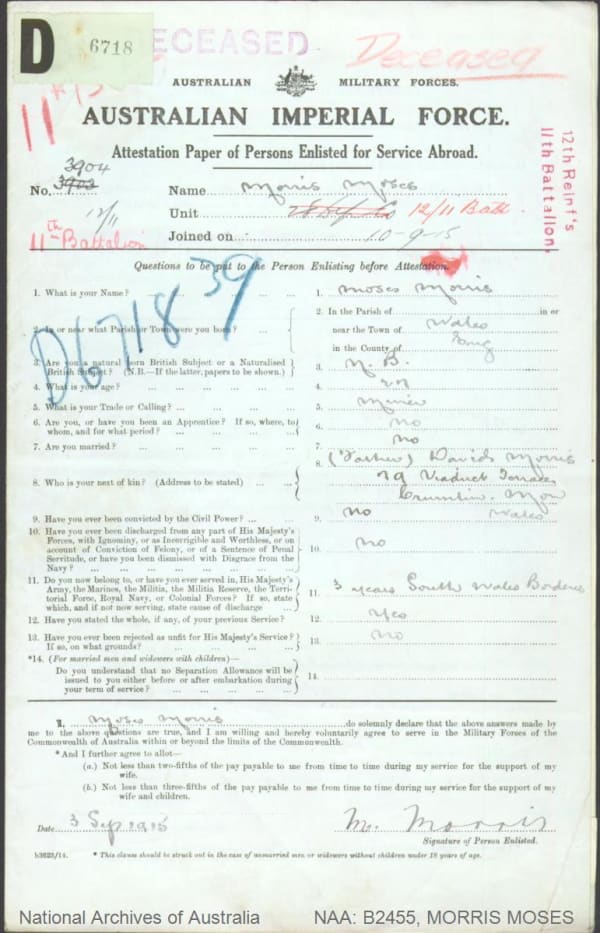 D
6718
DECEASED
Deceased
AUSTRALIAN MILITARY FORCES.
AUSTRALIAN IMPERIAL FORCE.
Attestation Paper of Persons Enlisted for Service Abroad.
12th Reinf's
11th Battalion
3904
No. 3903 Name Morris Moses
12/11 Unit 12/11 Batt
11th Battalion Joined on 10-9-15
Questions to be put to the Person Enlisting before Attestation.
D6718 39
1. What is your Name? 1. Moses Morris
2. In or near what Parish or Town were you born? 2. In the Parish of in or
near the Town of Wales
in the County of Eng
3. Are you a natural born British Subject or a Naturalised British Subject? (N.B.—If the latter, papers to be shown.) 3. N. B.
4. What is your age? 4.
5. What is your Trade or Calling? 5. Miner
6. Are you, or have you been an Apprentice? If so, where, to whom, and for what period? 6. no
7. Are you married? 7. no
8. Who is your next of kin? (Address to be stated) 8. (Father) David Morris
79 Viaduct Terrace
Crumlin. Mon
Wales
9. Have you ever been convicted by the Civil Power? 9. no
10. Have you ever been discharged from any part of His Majesty's
Forces, with Ignominy, or as Incorrigible and Worthless, or on
account of Conviction of Felony, or of a Sentence of Penal
Servitude, or have you been dismissed with Disgrace from the
Navy? 10. no
11. Do you now belong to, or have you ever served in, His Majesty's
Army, the Marines, the Militia, the Militia Reserve, the Territorial
Force, Royal Navy, or Colonial Forces? If so, state
which, and if not now serving, state cause of discharge 11. 3 years South Wales Borderes
12. Have you stated the whole, if any, of your previous Service? 12. Yes
13. Have you ever been rejected as unfit for His Majesty's Service?
If so, on what grounds? 13. no
*14. (For married men and widowers with children)—
Do you understand that no Separation Allowance will be
issued to you either before or after embarkation during
your term of service? 14.
I, Moses Morris do solemnly declare that the above answers made by
me to the above questions are true, and I am willing and hereby voluntarily agree to serve in the Military Forces of the
Commonwealth of Australia within or beyond the limits of the Commonwealth.
* And I further agree to allot—
(a.) Not less than two-fifths of the pay payable to me from time to time during my service for the support of my
wife.
(b.) Not less than three-fifths of the pay payable to me from time to time during my service for the support of my
wife and children.
Date 3 Sep 1915 M. Morris
Signature of Person Enlisted.
* This clause should be struck out in the case of unmarried men or widowers without children under 18 years of age.
National Archives of Australia NAA: B2455, MORRIS MOSES